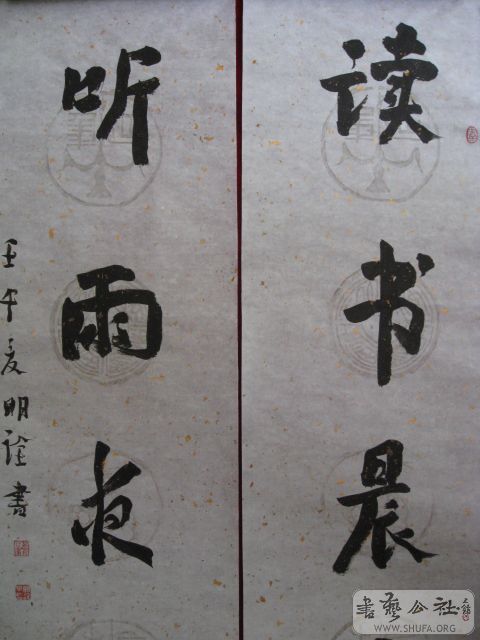 读书晨
听雨夜
壬午夏明诠書
書藝公社
WWW.SHUFA.ORG